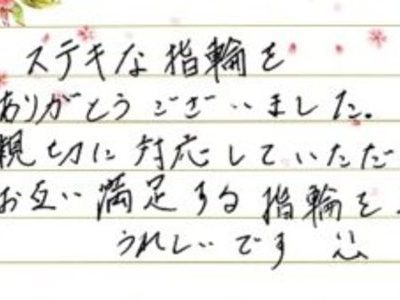 ステキな指輪を
ありがとうございました。
親切に対応していただ
お互い満足する指輪を
うれしいです